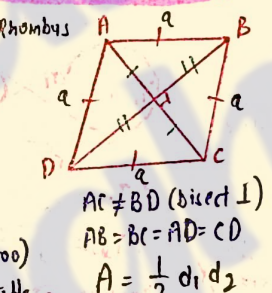 Rhombus
A
a
B
a
a
D
a
C
AC ≠ BD (bisect ⊥)
AB = BC = AD = CD
00)
A = 1/2 d₁ d₂